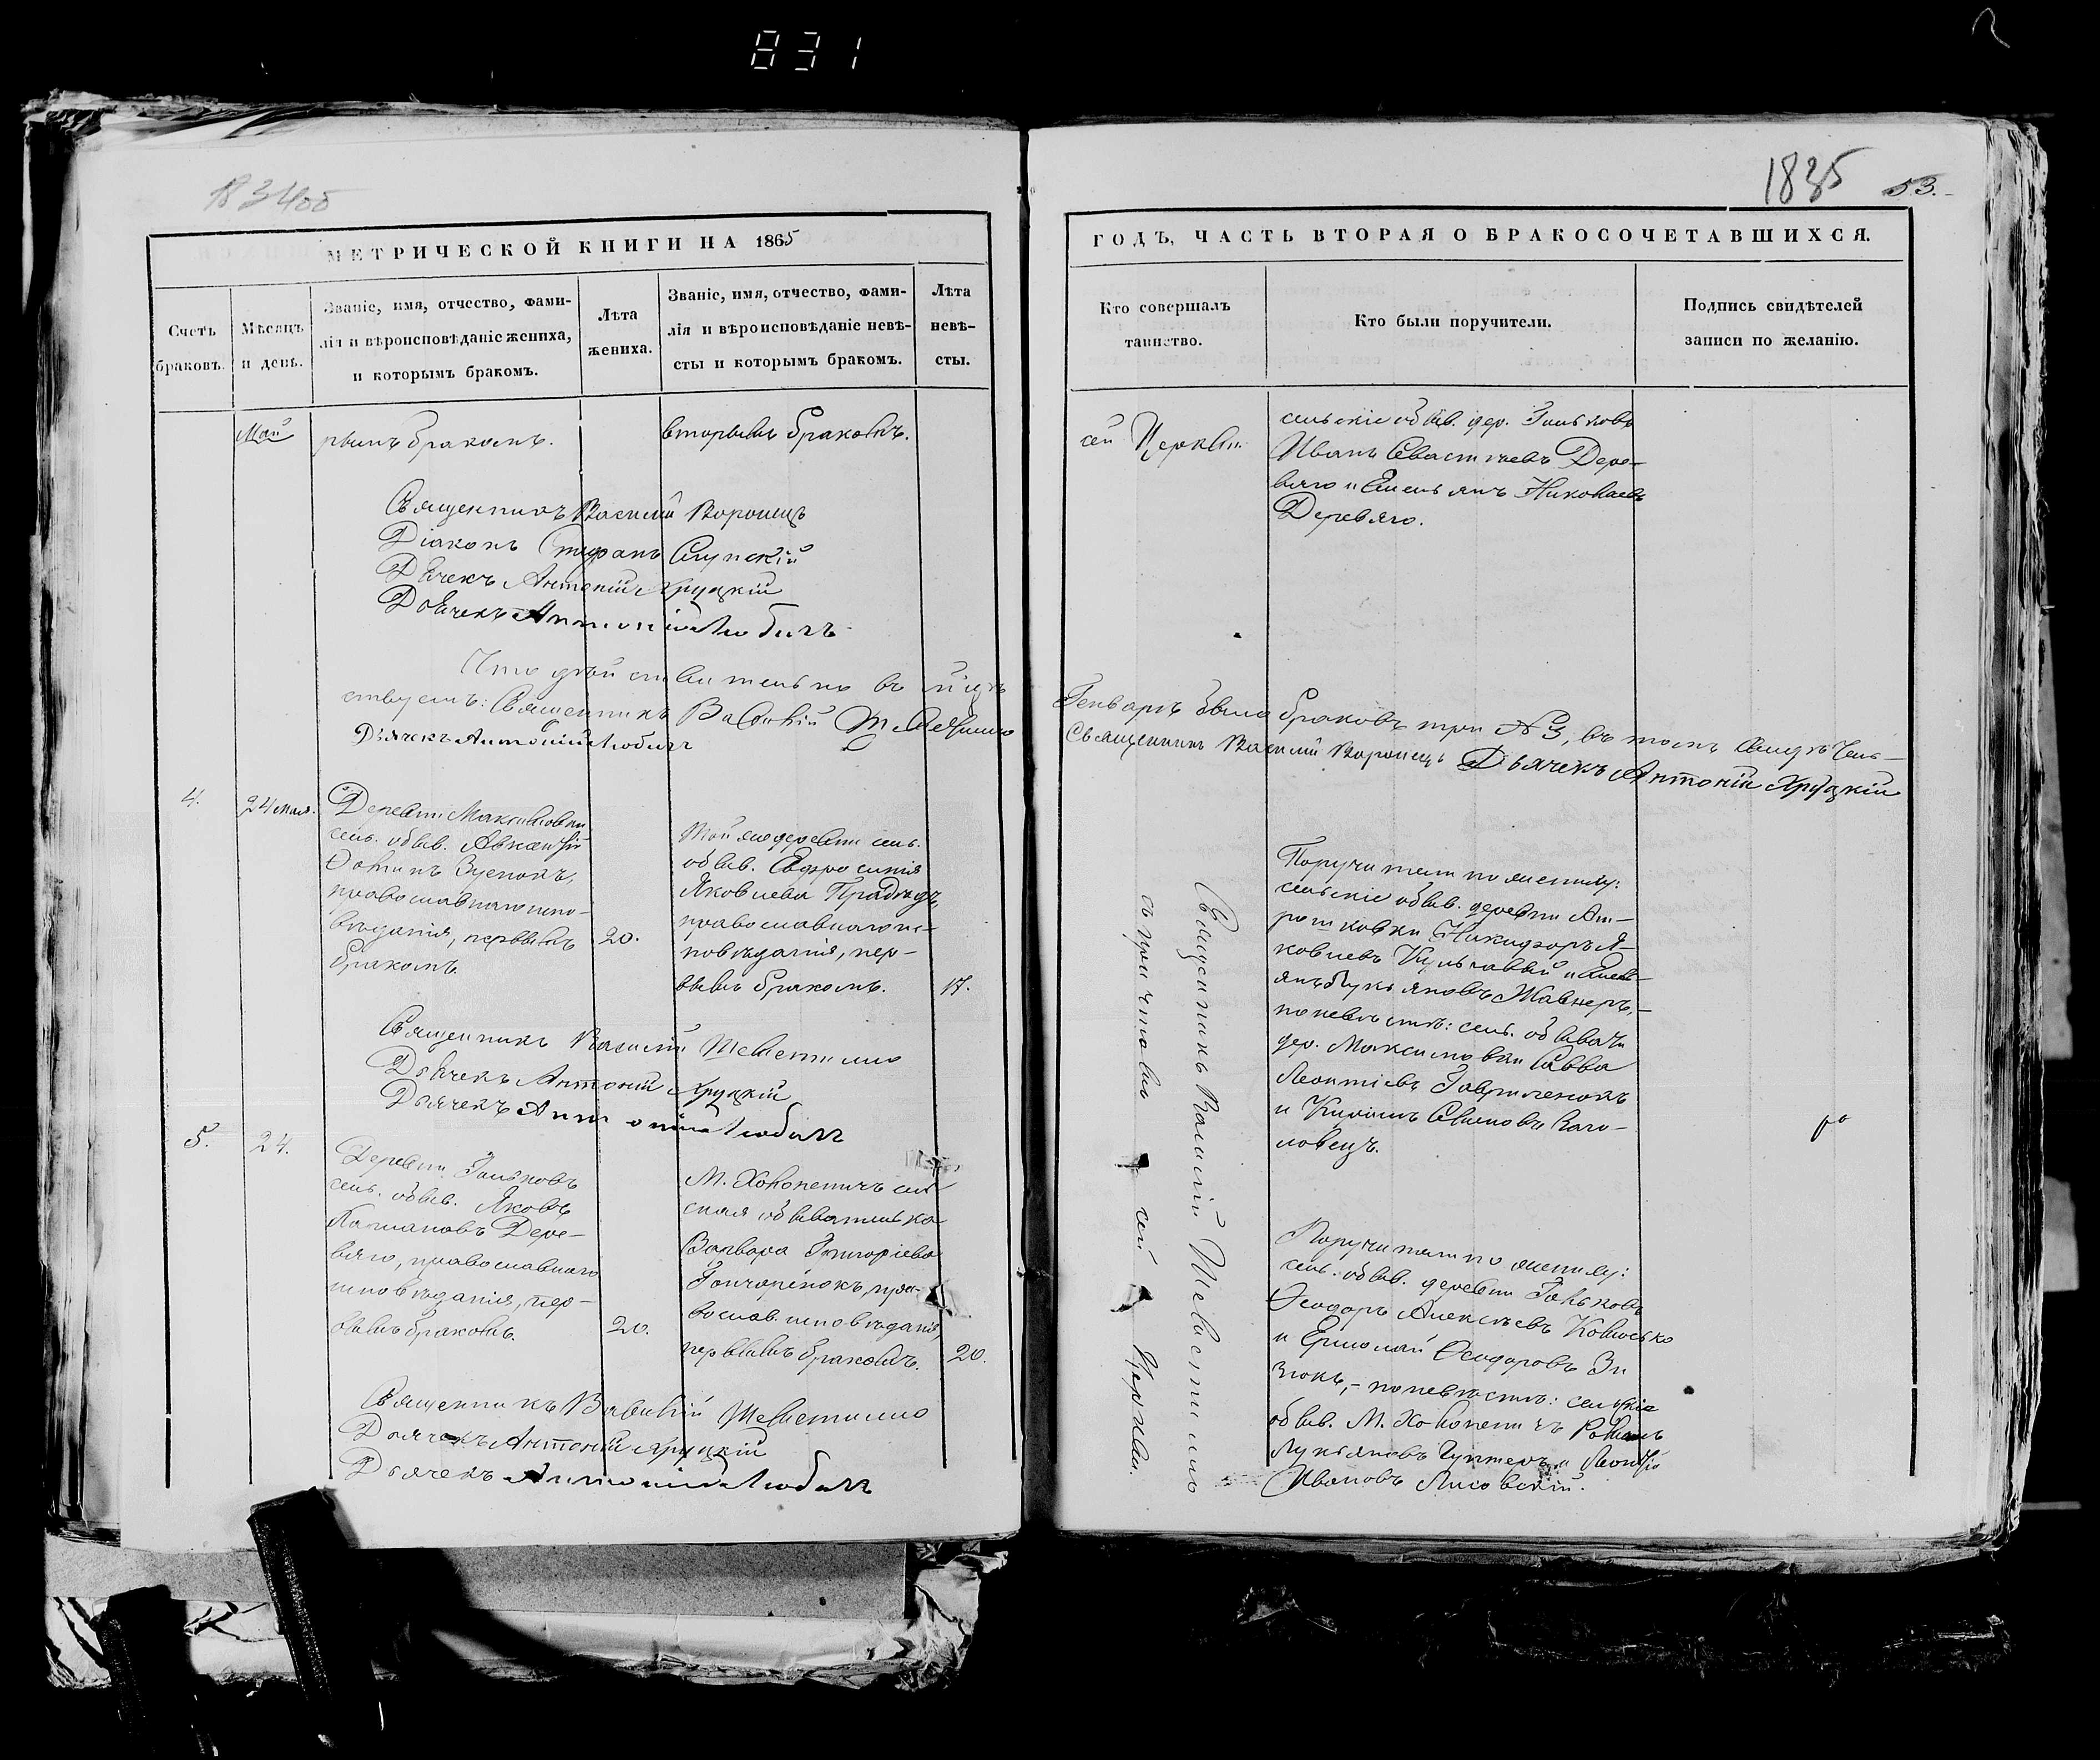 831
1835 53.
МЕТРИЧЕСКОЙ КНИГИ НА 1865
Счетъ браковъ.
Мѣсяцъ и день.
Званіе, имя, отчество, фами-
лія и вѣроисповѣданіе жениха,
и которымъ бракомъ.
Лѣта
жениха.
Званіе, имя, отчество, фами-
лія и вѣроисповѣданіе невѣ-
сты и которымъ бракомъ.
Лѣта
невѣ-
сты.
Май
рымъ бракомъ.
вторымъ бракомъ.
Священникъ Василій Воронецъ
Діаконъ Стефанъ Слупскій
Дьячекъ Антоній Хруцкій
Дьячекъ Антоній Любичъ
Что дѣйствительно въ
ствуемъ: Священникъ Василій Шелепилло
Дьячекъ Антоній Любичъ
4.
24 мая.
Деревни Максимовки
сель. обыв. Авксентій
Фоминъ Зуенокъ,
православнаго испо-
вѣданія, первымъ
бракомъ.
20.
Той же деревни сель.
обыв. Евфросинія
Яковлева Прадѣдъ,
православнаго ис-
повѣданія, пер-
вымъ бракомъ.
17.
Священникъ Василій
Дьячекъ Антоній Хруцкій
Дьячекъ Антоній Любичъ
5.
24.
Деревни Гольковъ
сель. обыв. Яковъ
Дере-
вяго, православнаго
исповѣданія, пер-
вымъ бракомъ.
20.
М. Холопеничъ сель
ская обывателька
Варвара Григоріева
Гончаренокъ, пра-
вослав. исповѣданія,
первымъ бракомъ.
20.
Священникъ Василій
Дьячекъ Антоній Хруцкій
Дьячекъ Антоній Любичъ
ГОДЪ, ЧАСТЬ ВТОРАЯ О БРАКОСОЧЕТАВШИХСЯ.
Кто совершалъ
таинство.
Кто были поручители.
Подпись свидѣтелей
записи по желанію.
сей Церкви
сельскіе обыв. дер.
Иванъ Дере-
вяго и Емельянъ Николаевъ
Деревяго.
Генварѣ было браковъ три № 3, въ томъ
Священникъ Василій Воронецъ Дьячекъ Антоній Хруцкій
Священникъ Василій
съ причтомъ сей Церкви.
Поручители по женихѣ:
сельскіе обыв. деревни Ан-
Никифоръ Я-
ковлевъ и Емель-
янъ Лукьяновъ Жавнеръ,-
по невѣстѣ: сель. обыватели
дер. Максимовки Савва
Леонтіевъ Гавриленокъ
и
ловецъ.
Поручители по женихѣ:
сель. обыв. деревни Гольковъ
Ѳеодоръ Алексѣевъ
и Ермолай Ѳеодоровъ Зи
зюкъ,- по невѣстѣ: сельскіе
обыв. М. Холопеничъ Романъ
Лукьяновъ и Леонтій
Ивановъ Лисовскій.